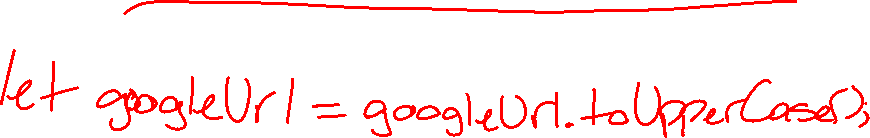 let googleUrl = googleUrl.toUpperCase();